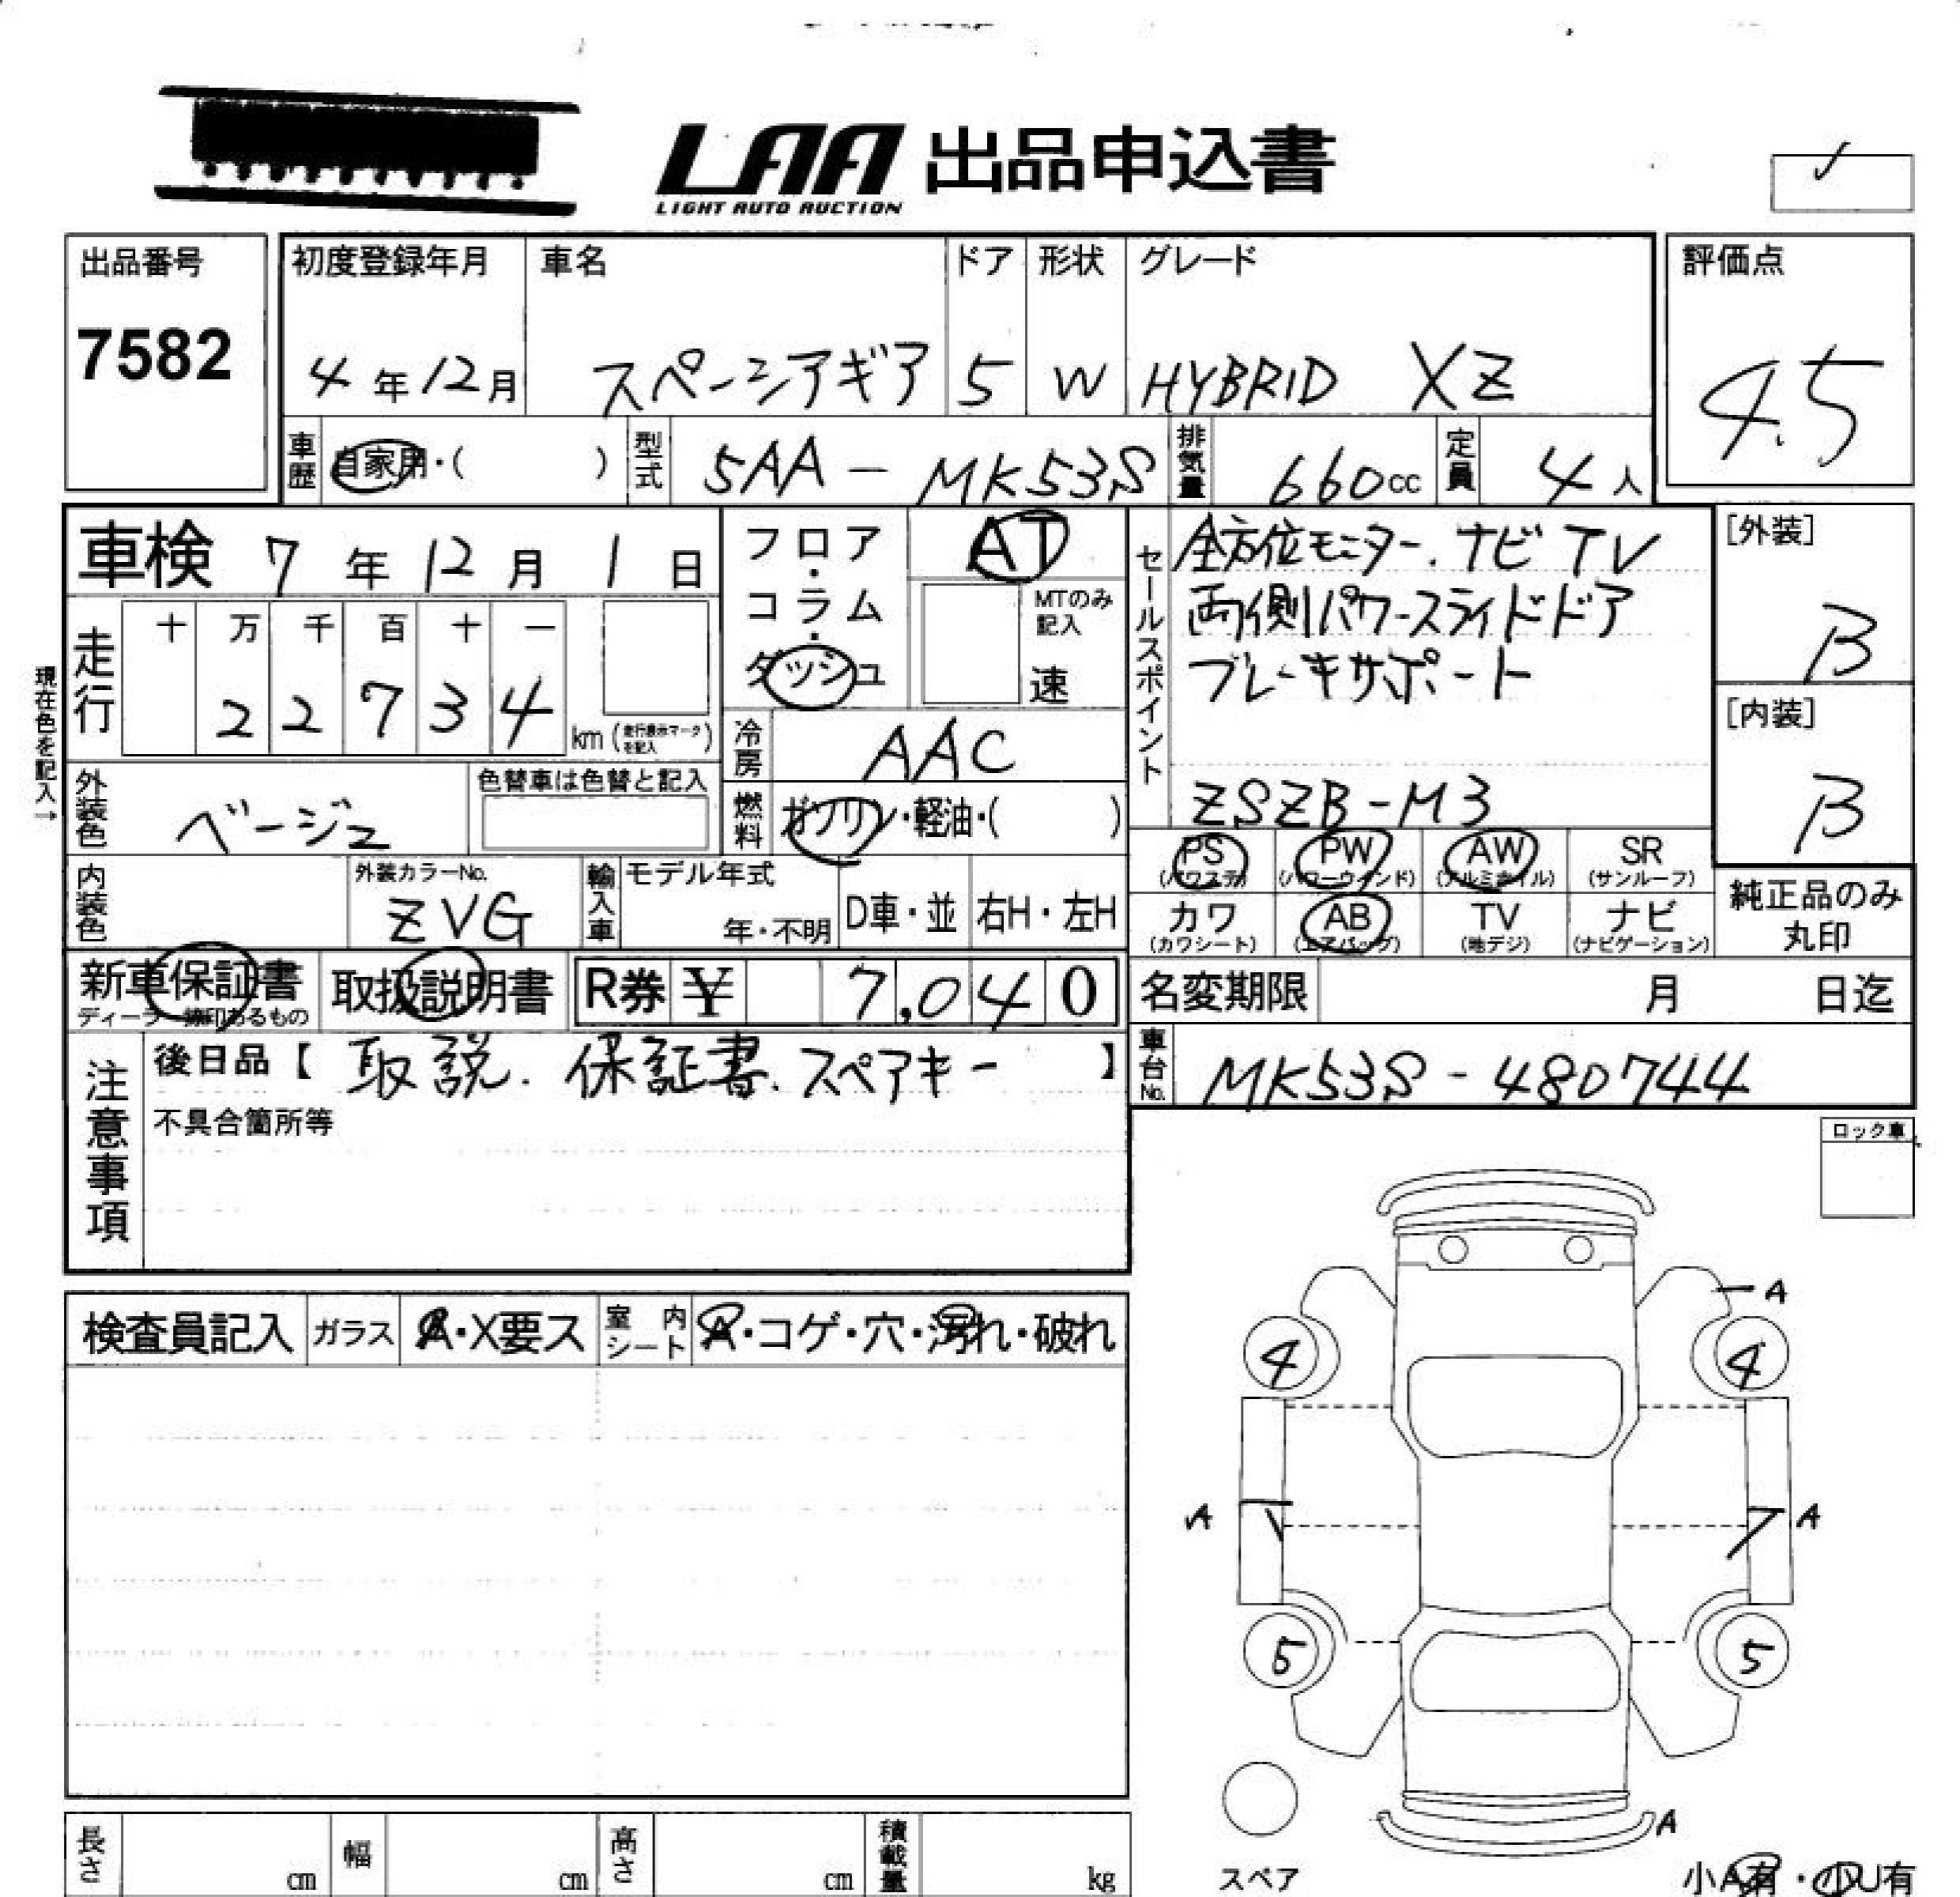 LAA 出品申込書
LIGHT AUTO AUCTION
出品番号
7582
初度登録年月
4年12月
車名
スペーシアギア
ドア
5
形状
W
グレード
HYBRID XZ
評価点
4.5
車歴
自家用・( )
型式
5AA-MK53S
排気量
660cc
定員
4人
車検 7年12月1日
走行
十 万 千 百 十 一
2 2 7 3 4
km(走行表示マークを記入)
現在色を記入→
フロア・コラム・ダッシュ
AT
MTのみ記入
速
冷房
AAC
燃料
ガソリン・軽油・( )
外装色
ベージュ
色替車は色替と記入
内装色
外装カラーNo.
ZVG
輸入車
モデル年式
年・不明
D車・並
右H・左H
セールスポイント
全方位モニター.ナビTV
両側パワースライドドア
ブレーキサポート
ZSZB-M3
[外装]
B
[内装]
B
PS (パワステ)
PW (パワーウィンド)
AW (アルミホイル)
SR (サンルーフ)
カワ (カワシート)
AB (エアバッグ)
TV (地デジ)
ナビ (ナビゲーション)
純正品のみ丸印
新車保証書
取扱説明書
R券 ¥ 7,040
名変期限 月 日迄
車台No.
MK53S-480744
注意事項
後日品【取説.保証書.スペアキー】
不具合箇所等
ロック車
検査員記入
ガラス
A・X要ス
室内シート
A・コゲ・穴・汚れ・破れ
A
4 4
A A
5 5
A
スペア
小A有・小U有
長さ cm
幅 cm
高さ cm
積載量 kg